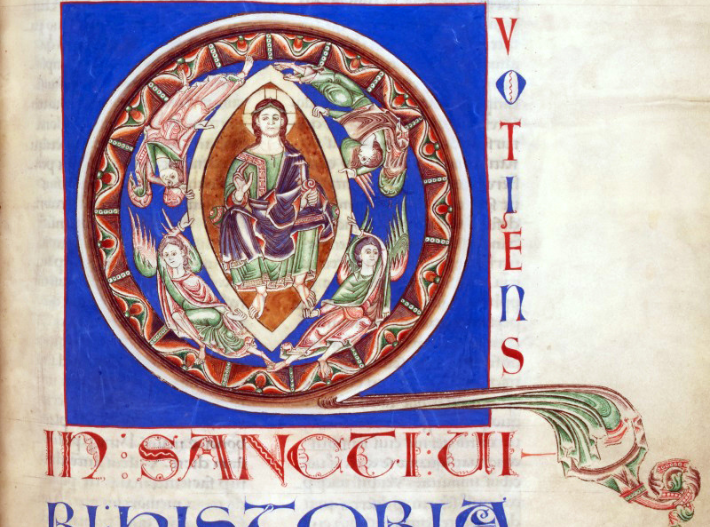 QVOTIENS
IN : SANCTI : UI-
RI : HISTORIA